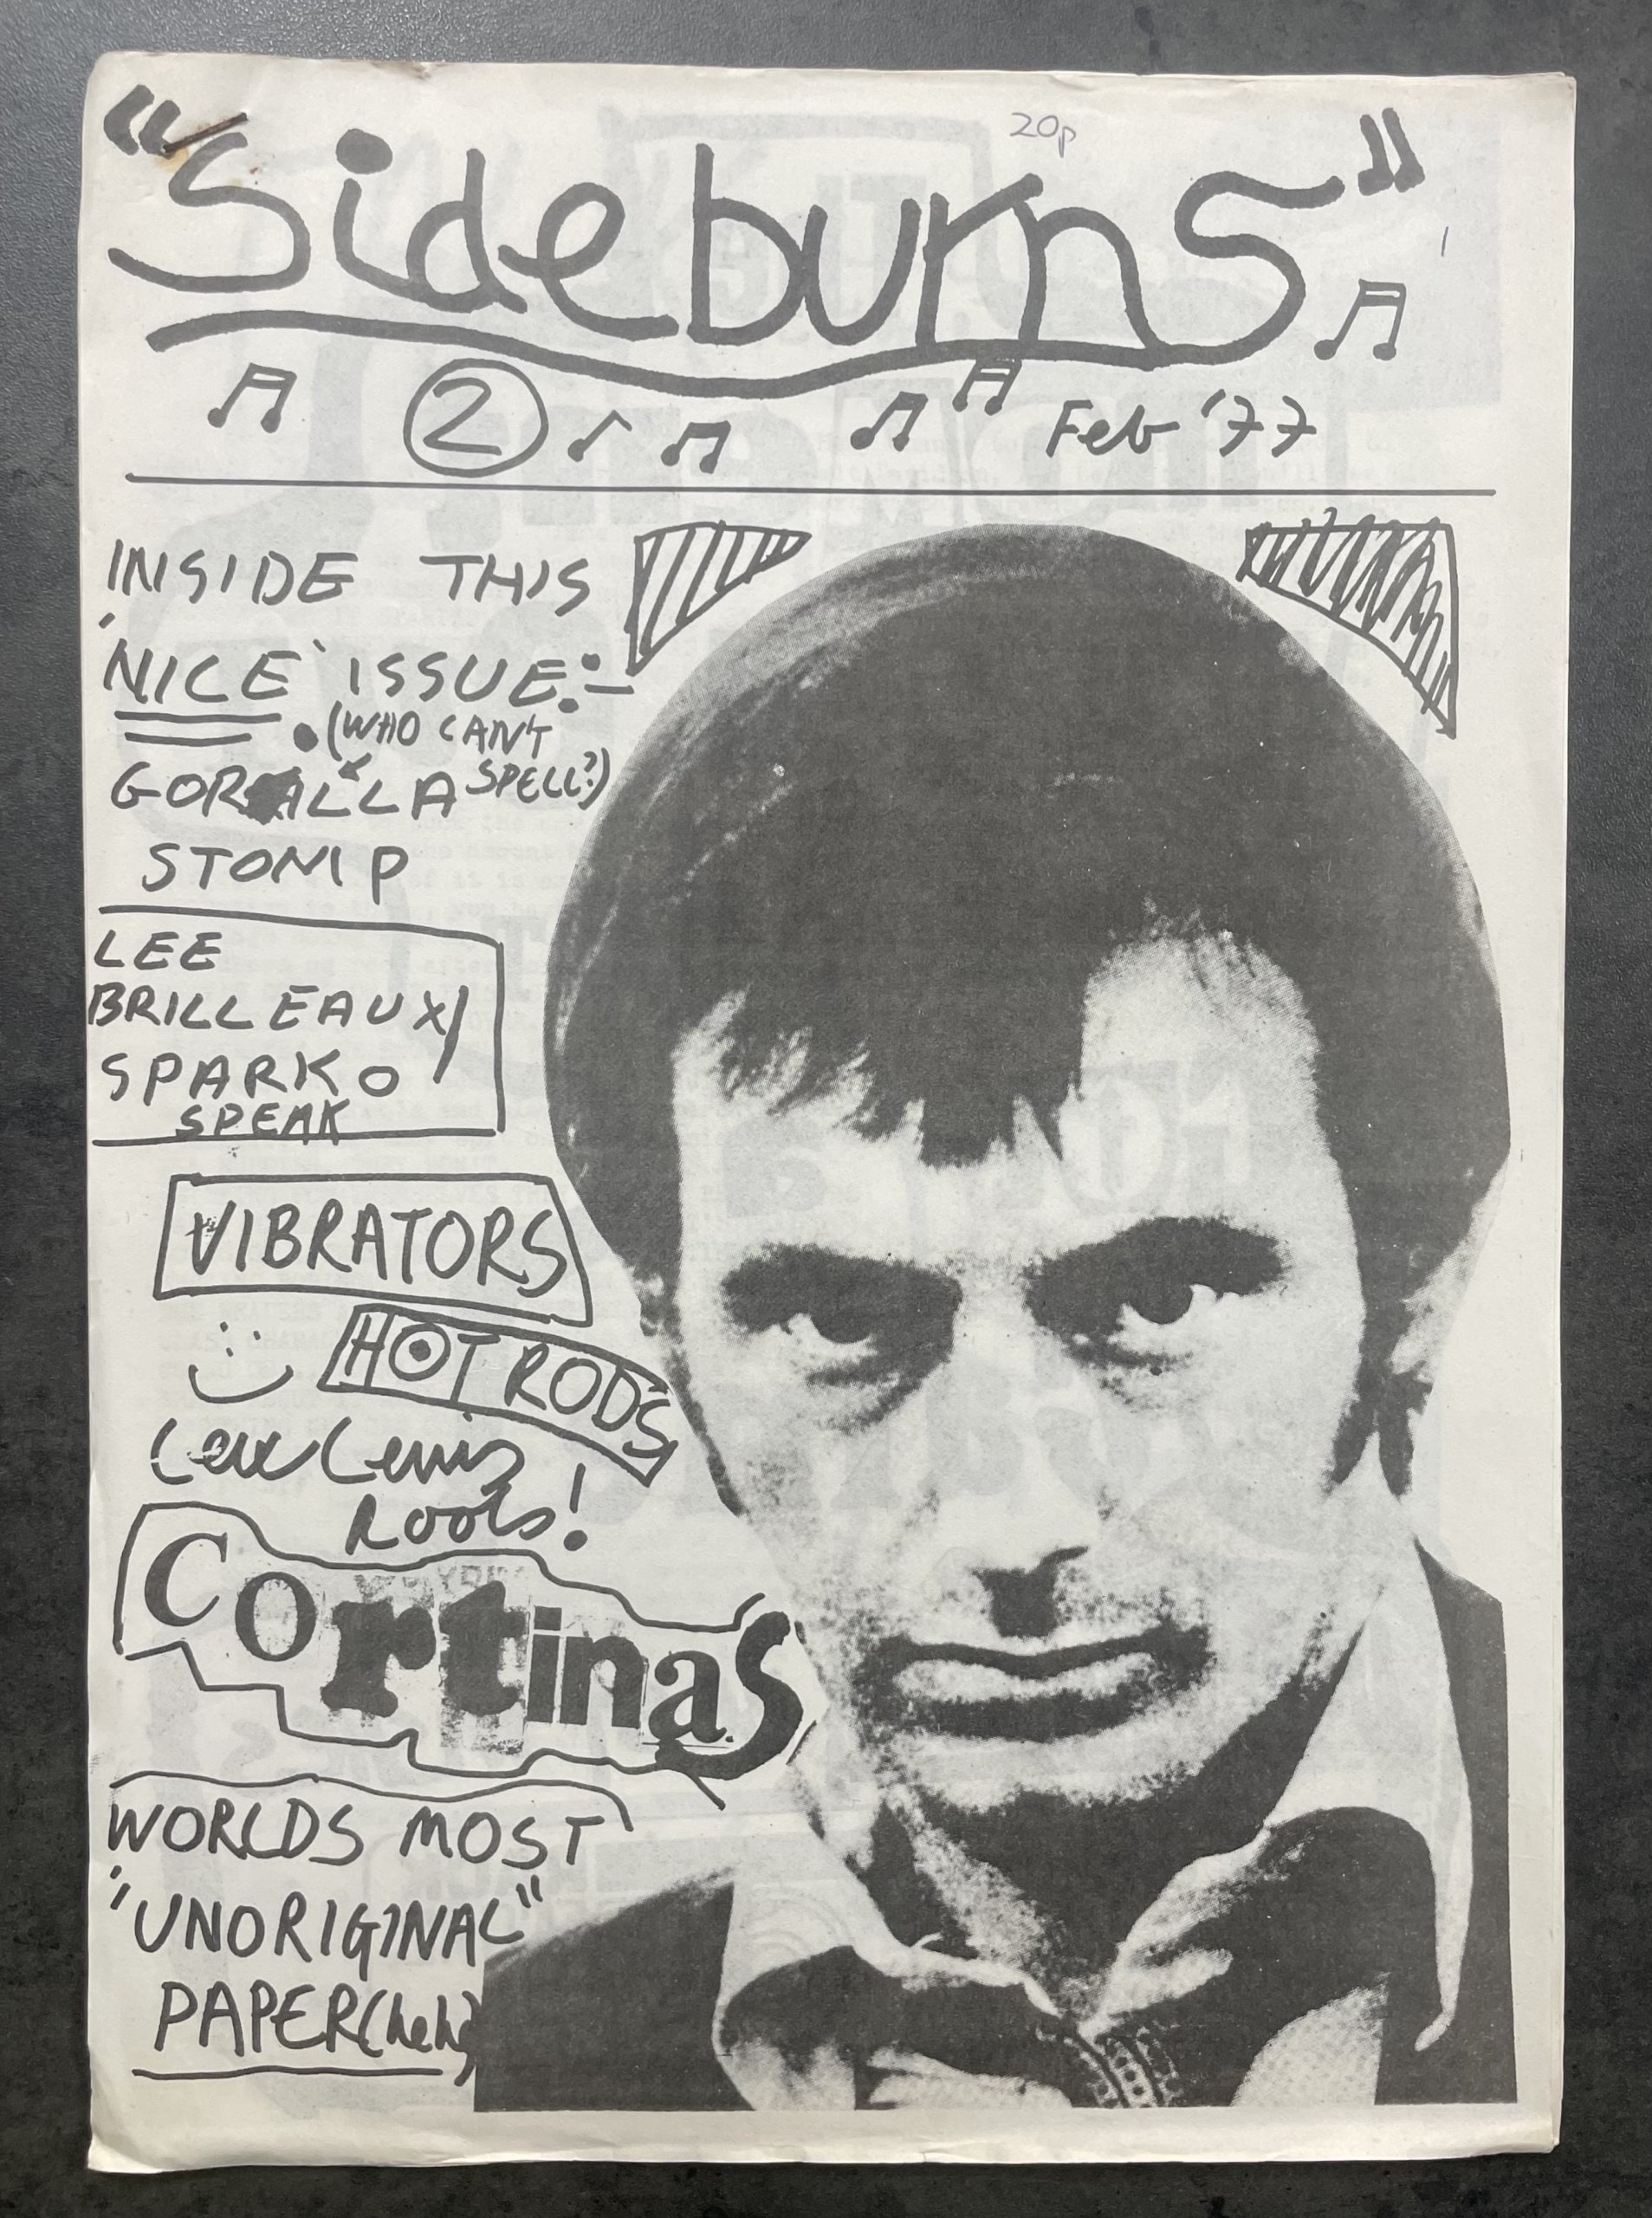 20p
"Sideburns"
2 Feb '77
INSIDE THIS
'NICE' ISSUE:-
(WHO CAN'T
SPELL?)
GORILLA
STOMP
LEE
BRILLEAUX/
SPARKO
SPEAK
VIBRATORS
HOT RODS
Lew Lewis
Roots!
Cortinas
WORLDS MOST
"UNORIGINAL"
PAPER(heh)